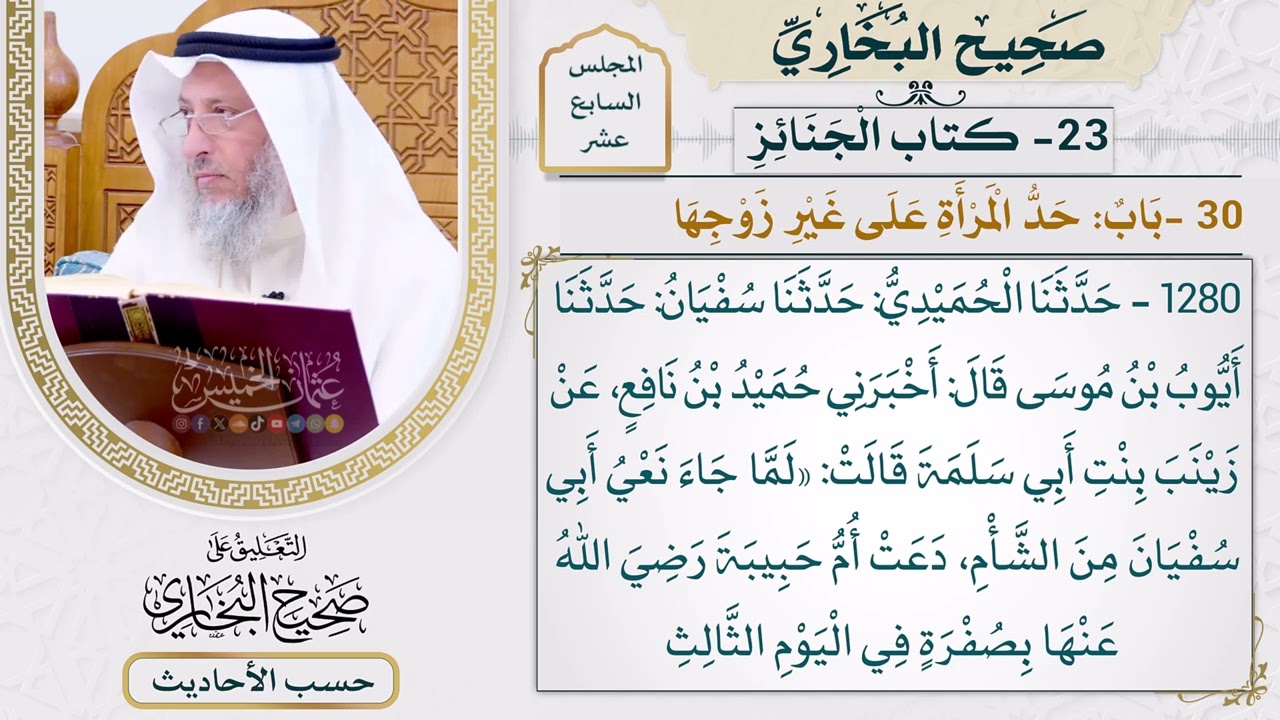 صَحِيح البُخَارِيِّ
المجلس
السابع
عشر
23- كتاب الْجَنَائِزِ
30 -بَابٌ: حَدُّ الْمَرْأَةِ عَلَى غَيْرِ زَوْجِهَا
1280 - حَدَّثَنَا الْحُمَيْدِيُّ: حَدَّثَنَا سُفْيَانُ: حَدَّثَنَا
أَيُّوبُ بْنُ مُوسَى قَالَ: أَخْبَرَنِي حُمَيْدُ بْنُ نَافِعٍ، عَنْ
زَيْنَبَ بِنْتِ أَبِي سَلَمَةَ قَالَتْ: «لَمَّا جَاءَ نَعْيُ أَبِي
سُفْيَانَ مِنَ الشَّأْمِ، دَعَتْ أُمُّ حَبِيبَةَ رَضِيَ اللهُ
عَنْهَا بِصُفْرَةٍ فِي الْيَوْمِ الثَّالِثِ
عثمان الخميس
التَّعْلِيقُ عَلَى
صَحِيحِ البُخَارِي
حسب الأحاديث